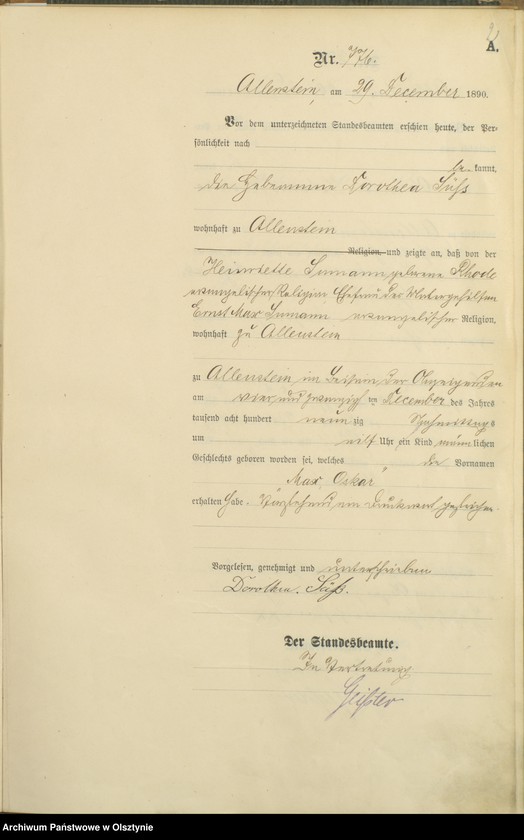 A.
Nr. 776.
Allenstein, am 29. December 1890.
Vor dem unterzeichneten Standesbeamten erschien heute, der Per-
sönlichkeit nach
be kannt,
die Hebeamme Dorothea Süß
wohnhaft zu Allenstein
Religion, und zeigte an, daß von der
Henriette geborene Rhode
evangelischer Religion, Ehefrau des
Ernst Max evangelischer Religion,
wohnhaft zu Allenstein
zu Allenstein im Beisein der Anzeigenden
am vier und zwanzig ten December des Jahres
tausend acht hundert neun zig Nachmittags
um elf Uhr ein Kind männlichen
Geschlechts geboren worden sei, welches die Vornamen
Max Oskar
erhalten habe. Vorstehend ein Druckwort gestrichen.
Vorgelesen, genehmigt und unterschrieben
Dorothea Süß.
Der Standesbeamte.
In Vertretung
Archiwum Państwowe w Olsztynie